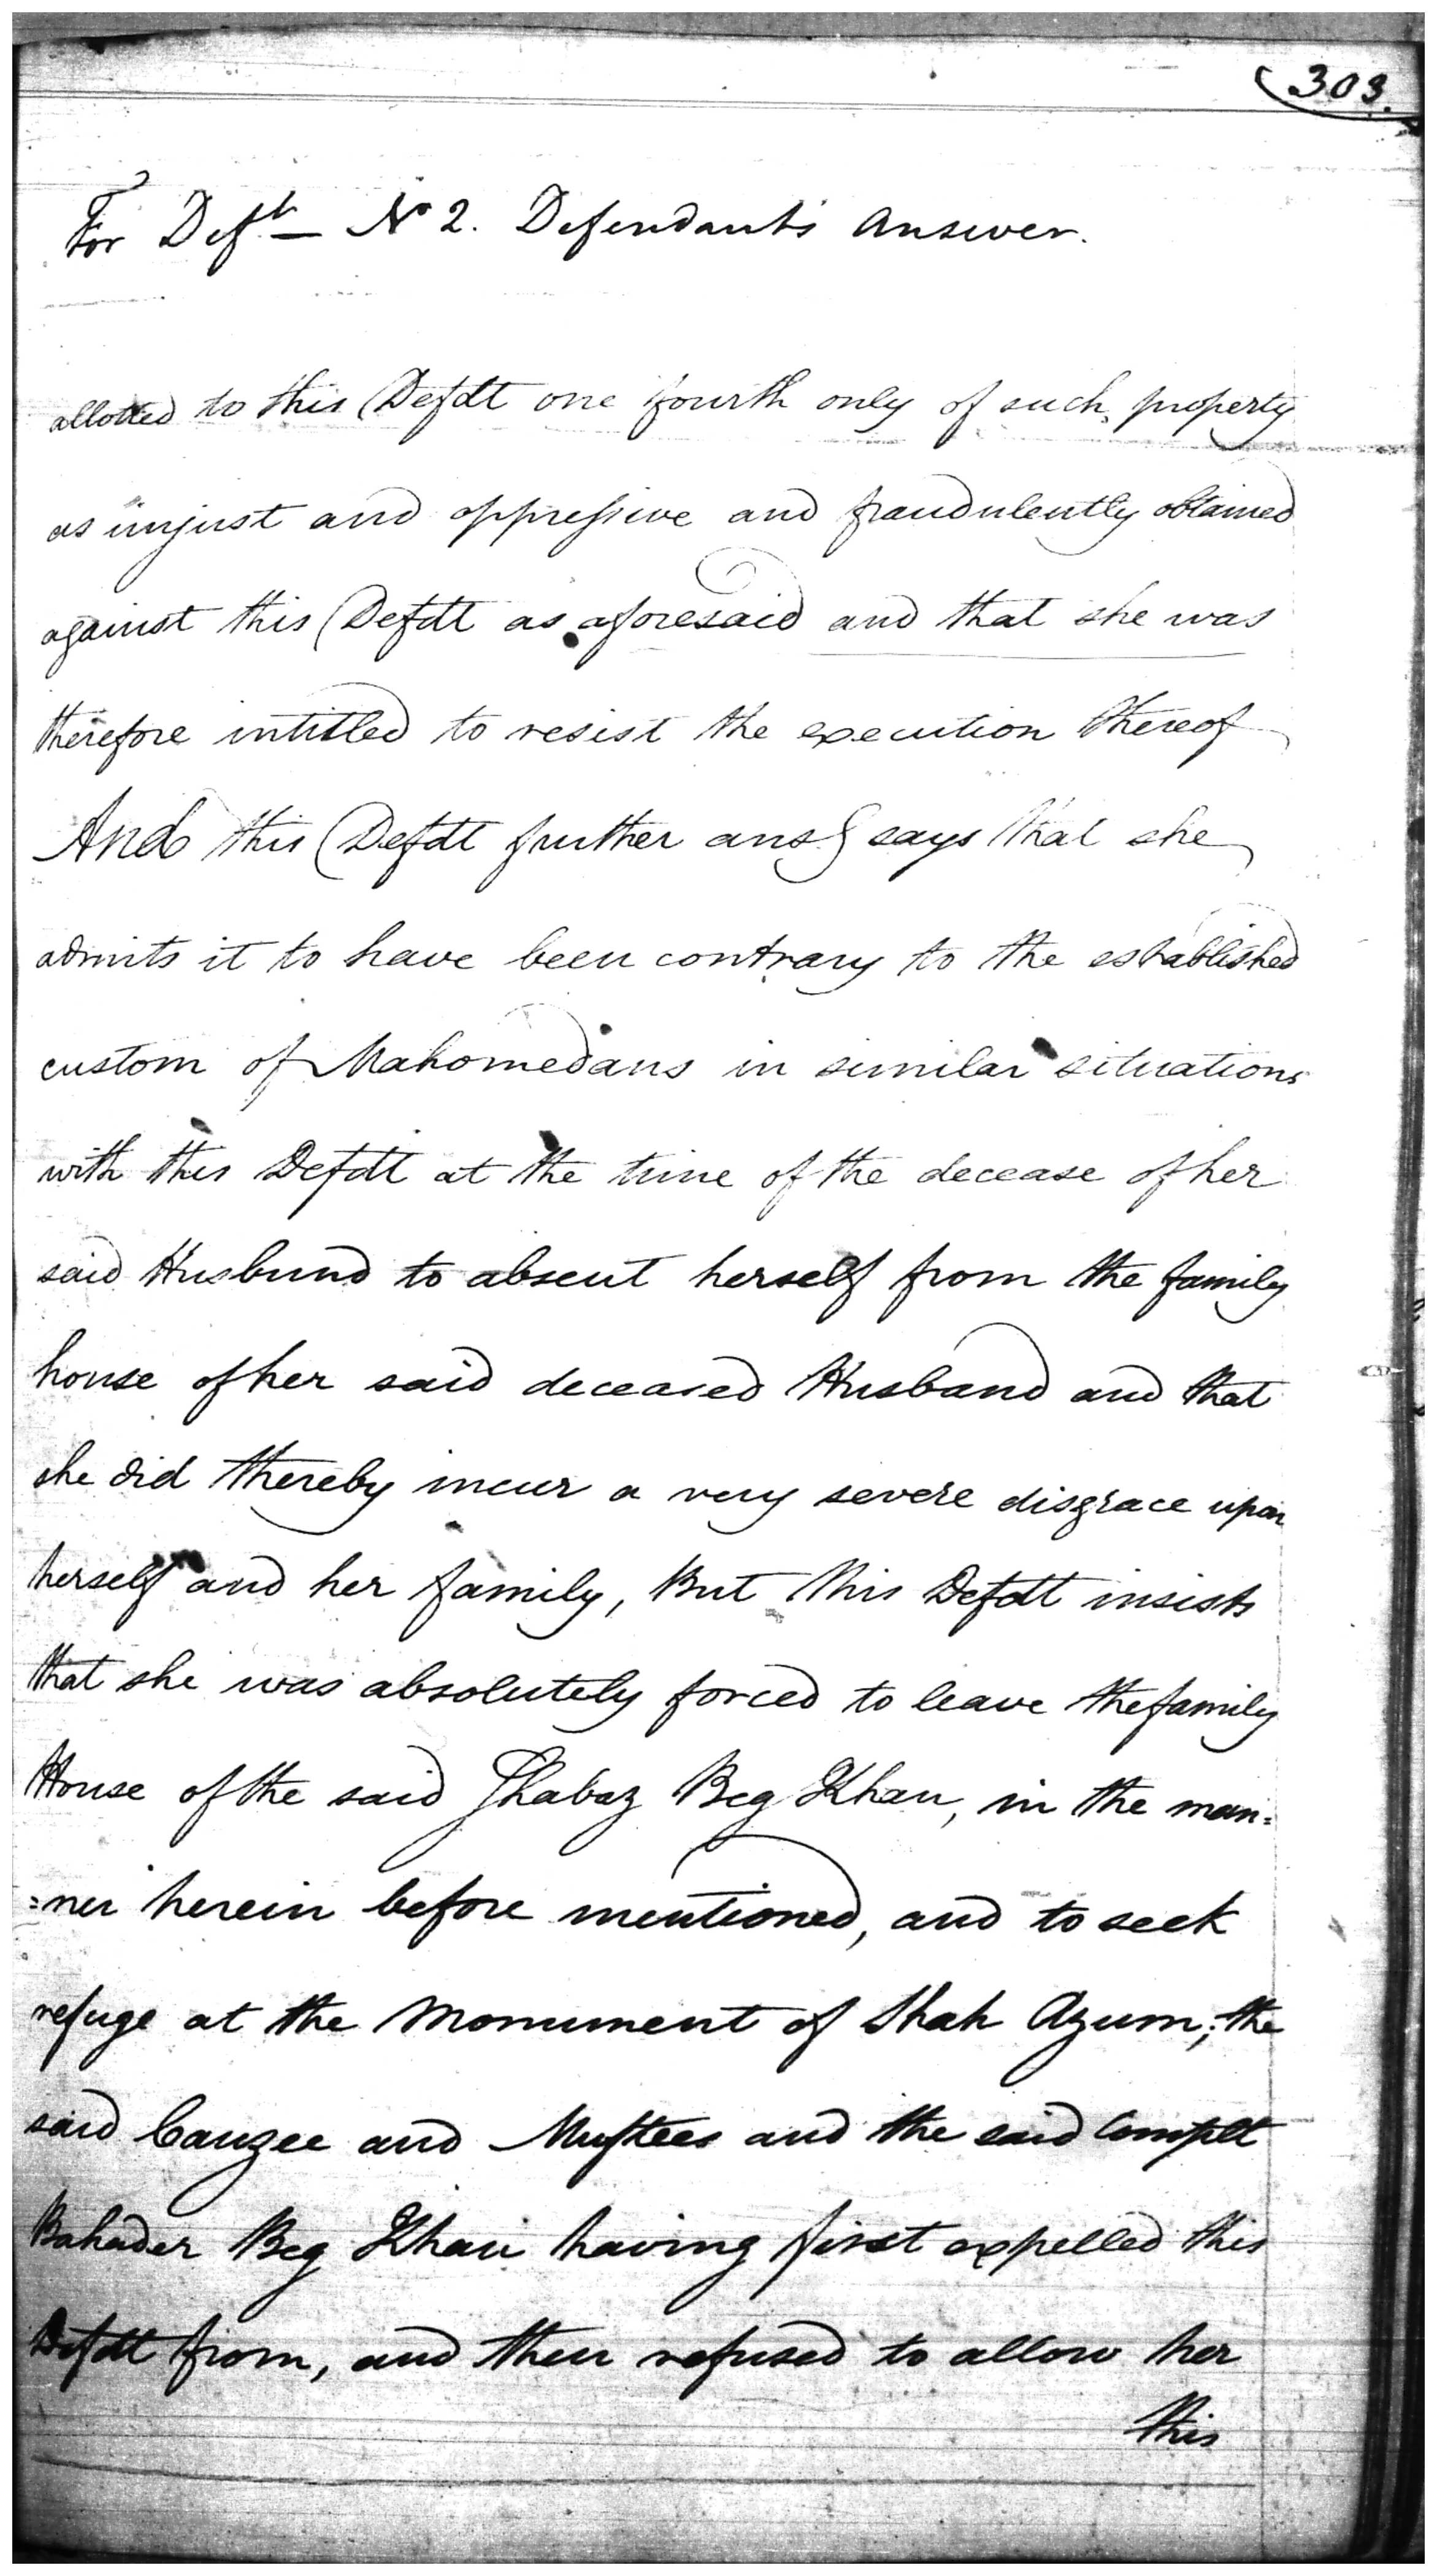 303.
For Deft — No 2. Defendants Answer.
allotted to this Defdt one fourth only of such property
as unjust and oppressive and fraudulently obtained
against this Defdt as aforesaid and that she was
therefore intitled to resist the execution thereof
And this Defdt further ans& says that she
admits it to have been contrary to the established
custom of Mahomedans in similar situations
with this Defdt at the time of the decease of her
said Husbund to absent herself from the family
house of her said deceased Husband and that
she did thereby incur a very severe disgrace upon
herself and her family, But this Defdt insists
that she was absolutely forced to leave the family
House of the said Shabaz Beg Khan, in the man=
=ner herein before mentioned, and to seek
refuge at the Monument of Shah Azum; the
said Cauzee and Muftees and the said Complt
Bahader Beg Khan having first expelled this
Defdt from, and then refused to allow her
this